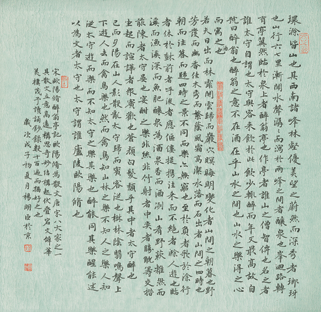 環滁皆山也其西南諸峰林壑優美望之蔚然而深秀者瑯琊
也山行六七里漸聞水聲潺潺而瀉於兩峰之間者釀泉也峰迴路轉
有亭翼然臨於泉上者醉翁亭也作亭者誰山之僧智僊也名之者
誰太守自謂也太守與客來飲於此飲少輒醉而年又最高故自
號曰醉翁也醉翁之意不在酒在乎山水之間也山水之樂得之心
而寓之酒也
若夫日出而林霏開雲歸而巖穴暝晦明變化者山間之朝暮也野
芳發而幽香佳木秀而繁陰風霜高潔水落而石出者山間之四時也
朝而往暮而歸四時之景不同而樂亦無窮也至於負者歌於途行
者休於樹前者呼後者應傴僂提攜往來而不絕者滁人遊也臨
溪而漁溪深而魚肥釀泉為酒泉香而酒洌山肴野蔌雜然而
前陳者太守宴也宴酣之樂非絲非竹射者中弈者勝觥籌交錯
起坐而諠譁者衆賓歡也蒼顏白髮頹乎其中者太守醉也
已而夕陽在山人影散亂太守歸而賓客從也樹林陰翳鳴聲上
下遊人去而禽鳥樂也然而禽鳥知山林之樂而不知人之樂人知
從太守遊而樂而不知太守之樂其樂也醉能同其樂醒能述
以為文者太守也太守謂誰廬陵歐陽修也
宋歐陽修醉翁亭記歐陽修為散文唐宋八大家之一
歲次戊子年夏月